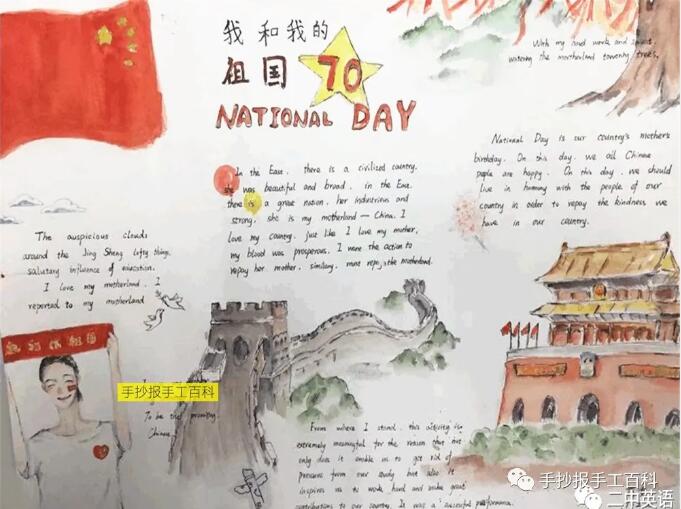 我和我的
祖国 70
NATIONAL DAY
With my hard work and sweat,
watering the motherland towering trees.
In the East, there is a civilized country,
she was beautiful and broad, in the East
there is a great nation, her industrious and
strong, she is my motherland — China. I
love my country, just like I love my mother,
my blood was prosperous. I were the action to
repay her mother, similarly, must repay the motherland.
National Day is our country's mother's
birthday. On this day, we all Chinese
people are happy. On this day, we should
live in harmony with the people of our
country in order to repay the kindness we
have in our country.
The auspicious clouds
around the Jing Sheng lofty things,
salutary influence of education.
I love my motherland, I
reported to my motherland
祖国
手抄报手工百科
To be the
Chinese
From where I stand, this activity is
extremely meaningful for the reason that not
only does it enable us to get rid of
pressure from our study but also it
inspires us to work hard and make great
contributions to our country. It was a successful performance.
手抄报手工百科
二中英语